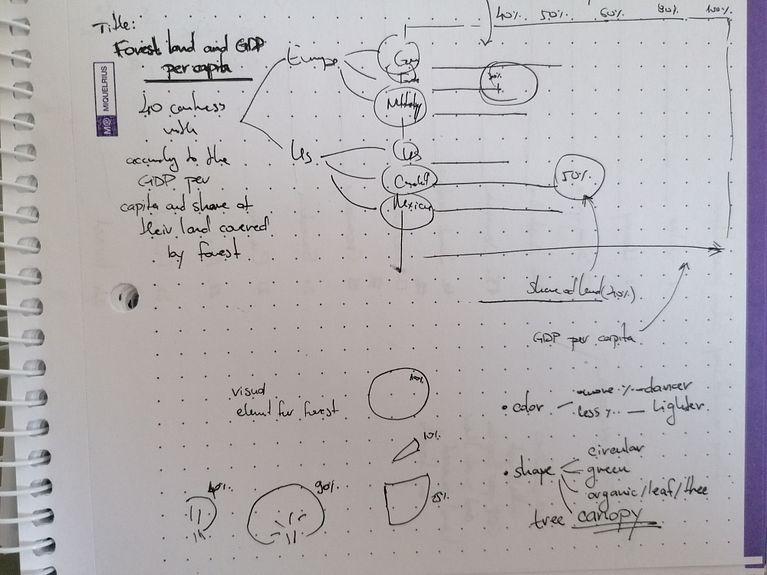 Title:
Forest land and GDP
per capita
40% 50% 60% 80% 100%
MIQUELRIUS
40 countries
with
according to the
GDP per
capita and share of
their land covered
by forest
Europe
Us
Us
Mexico
50%
share of land (50%)
GDP per capita
visual
element for forest
10%
40%
90%
• color
more % - darker
less % - lighter
• shape
circular
green
organic/leaf/tree
tree canopy